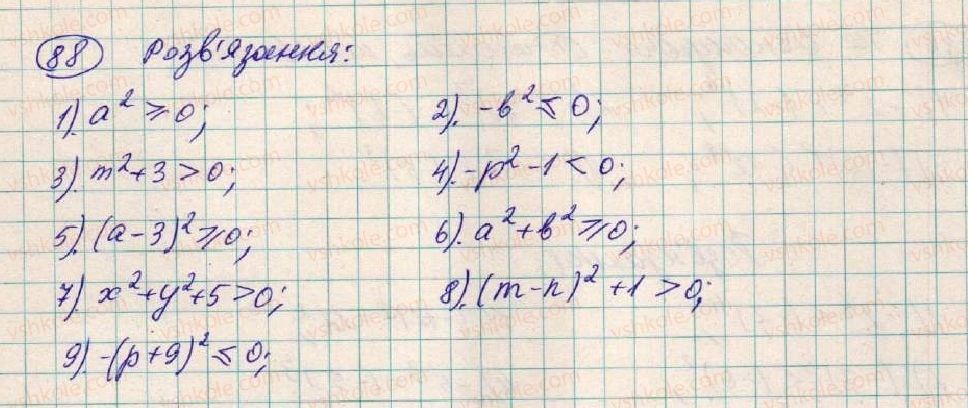 88 Розв'язання:
1). a² ⩾ 0; 2). -b² ⩽ 0;
3). m²+3 > 0; 4). -p² -1 < 0;
5). (a-3)² ⩾ 0; 6). a²+b² ⩾ 0;
7). x²+y²+5 > 0; 8). (m-n)² +1 > 0;
9). -(p+9)² ⩽ 0;